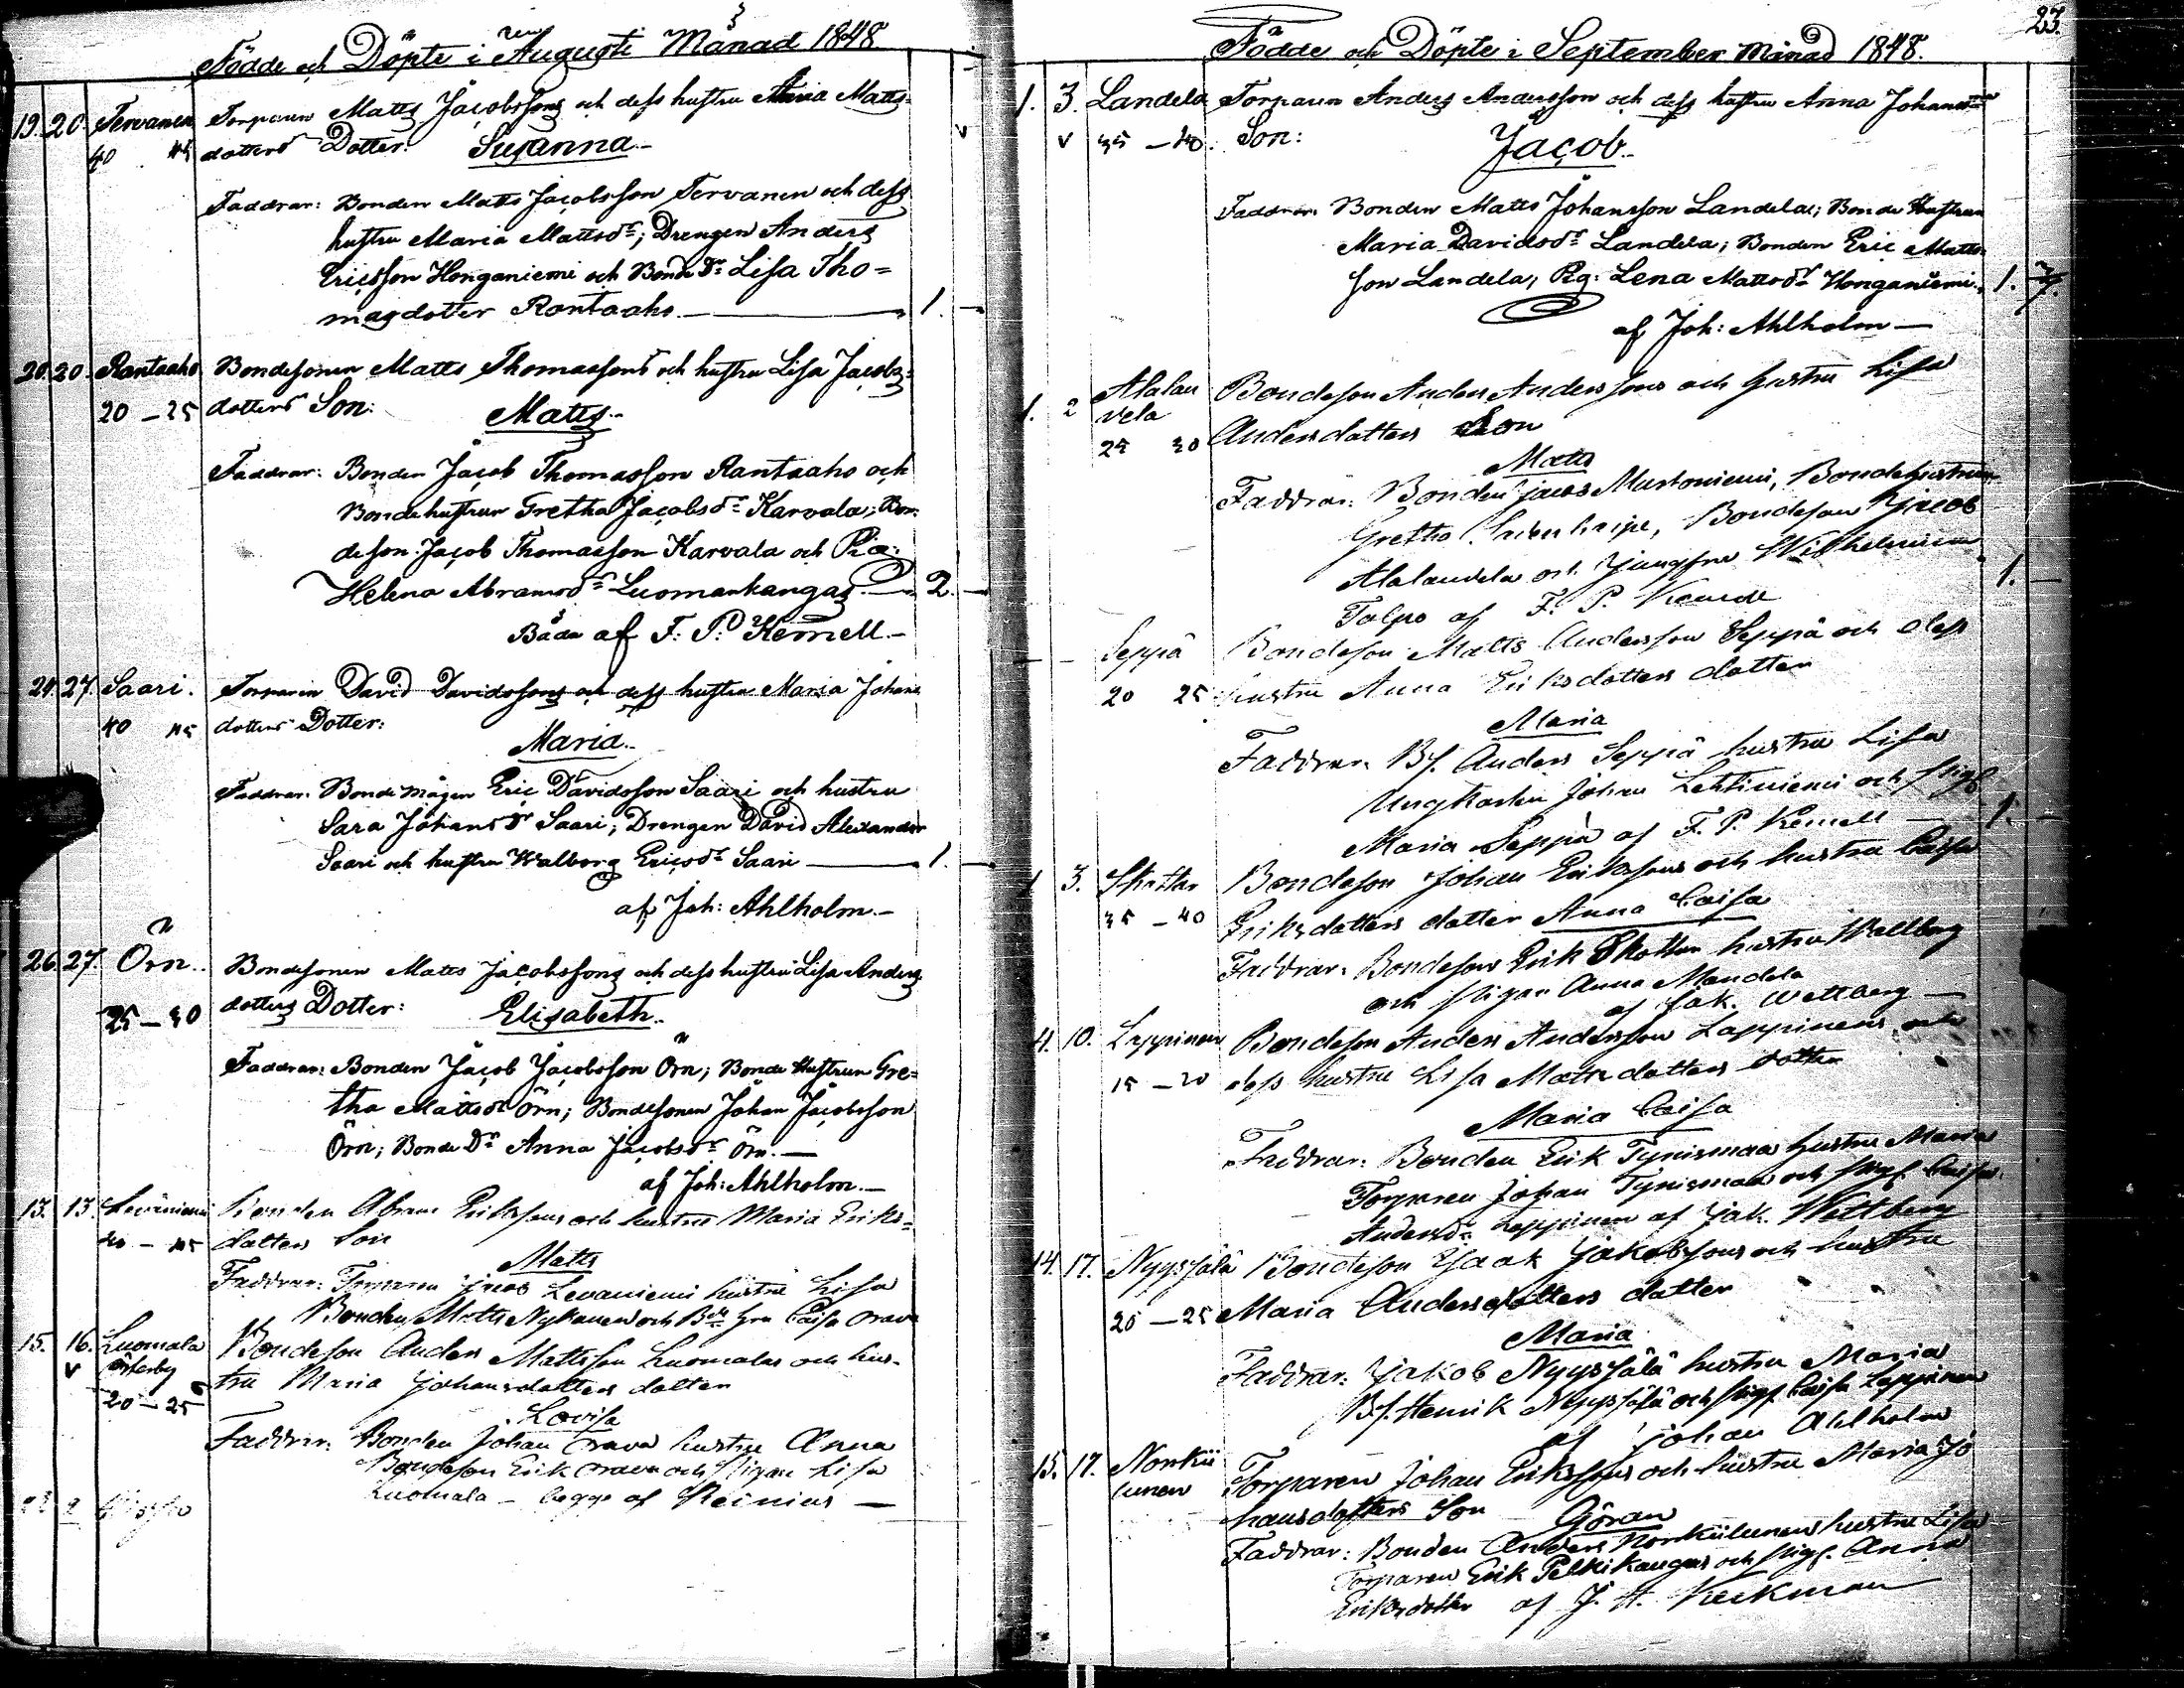 Födde och Döpte i Augusti Månad 1848
19. 20. Tervanen Torparen Matts Jacobssons och dess hustru Maria Matts-
40 45 dotters Dotter: Susanna.
Faddrar: Bonden Matts Jacobsson Tervanen och dess
hustru Maria Mattsdr; Drengen Anders
Ericsson Honganiemi och Bonde Dr Lisa Tho=
masdotter Rantaaho. — 1. —
20. 20. Rantaaho Bondesonen Matts Thomassons och hustru Lisa Jacobs-
20 – 25 dotters Son: Matts.
Faddrar: Bonden Jacob Thomasson Rantaaho och
Bondehustrun Gretha Jacobsdr Karvala; Bon-
deson Jacob Thomasson Karvala och Pig:
Helena Abramsdr Luomankangas. — 2. —
Båda af F. P. Kemell. —
24. 27. Saari. Torparen David Davidssons och dess hustru Maria Johans
40 45 dotters Dotter:
Maria.
Faddrar: Bonde mågen Eric Davidsson Saari och hustru
Sara Johans Dr Saari; Drengen David Alexander
Saari och hustru Walborg Ericsdr Saari — 1. —
af Joh: Ahlholm. —
26. 27. Örn. Bondesonen Matts Jacobssons och dess hustru Lisa Anders
25 – 30 dotters Dotter: Elisabeth.
Faddrar: Bonden Jacob Jacobsson Örn; Bonde Hustrun Gre=
tha Mattsdr Örn; Bondesonen Johan Jacobsson
Örn; Bonde Dr Anna Jacobsdr Örn. —
af Joh: Ahlholm. —
13. 13. Leväniemi Bonden Abram Erikssons och hustru Maria Eriks-
40 – 45 dotters Son
Matts
Faddrar: Torparen Jacob Levaniemi hustru Lisa
Bonden Matts Nykanen och Caisa Orava
15. 16. Luomala Bondeson Anders Mattsson Luomalas och hus-
v Österby tru Maria Johansdotters dotter
20 – 25
Lovisa
Faddrar: Bonden Johan Orava hustru Anna
Bondeson Erik Orava och Pigan Lisa
Luomala – begge af Reinius —
23.
Födde och Döpte i September Månad 1848.
1. 3. Landela Torparen Anders Andersson och dess hustru Anna Johans
v 35 – 40. Son: Jacob.
Faddrar: Bonden Matts Johansson Landela; Bonde Hustrun
Maria Davidsdr Landela; Bonden Eric Matts-
son Landela; Pig: Lena Mattsdr Honganiemi. 1.
af Joh: Ahlholm —
1. 2 Alalan Bondeson Anders Anderssons och hustru Lisa
vela
25 30 Andersdotters Son
Matts
Faddrar: Bonden Jacob Mustoniemi, Bondehustrun
Gretha, Bondeson Jacob
Alalanvela och Jungfru Wilhelmina
Talpo af F. P. Kemell 1. —
Seppä Bondeson Matts Andersson Seppä och dess
20 25 hustru Anna Eriksdotters dotter
Maria
Faddrar: Bs. Anders Seppä hustru Lisa
Ungkarlen Johan Lehtiniemi och Pig.
Maria Seppä af F. P. Kemell 1. —
1 3. Skottar Bondeson Johan Erikssons och hustru Caisa
35 – 40 Eriksdotters dotter Anna Caisa
Faddrar: Bondeson Erik Skottar hustru Wallborg
och Pigan Anna Mandela
af Jak. Wettberg —
4. 10. Lappinen Bondeson Anders Andersson Lappinens och
15 – 20 dess hustru Lisa Mattsdotters dotter
Maria Caisa
Faddrar: Bonden Erik Tynismaa hustru Maria
Torparen Johan Tynismaa och Pig. Caisa
Andersdr Lappinen af Jak. Wettberg
14. 17. Nyyssölä Bondeson Isaak Jakobssons och hustru
20 – 25 Maria Andersdotters dotter
Maria
Faddrar: Jakob Nyyssölä hustru Maria
Bs. Henrik Nyyssölä och Pig. Caisa Lappinen
af Johan Ahlholm
15. 17. Norkii Torparen Johan Erikssons och hustru Maria Jo
lunen hansdotters Son Göran
Faddrar: Bonden Anders Norkiilunen hustru Lisa
Torparen Erik Pelkikangas och Pig. Anna
Eriksdotter af J. H. Keckman